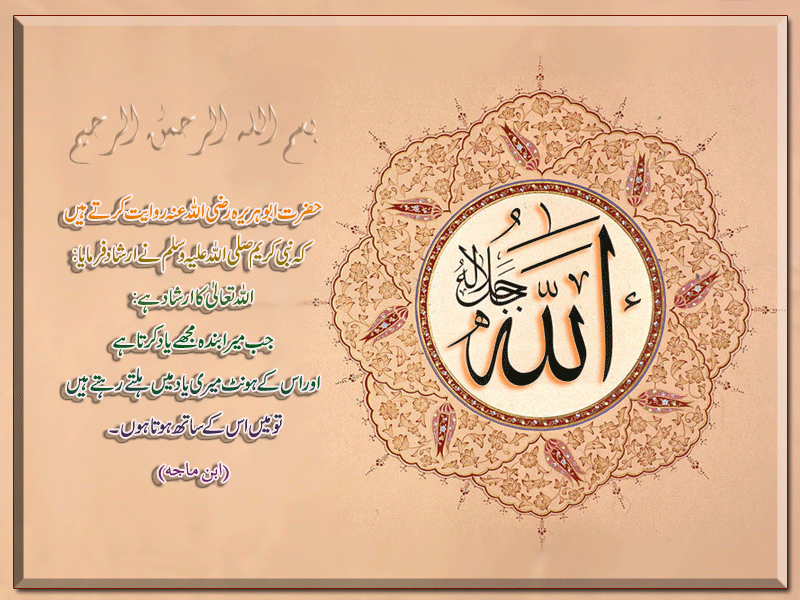 بسم الله الرحمن الرحيم
حضرت ابو ہریرہ رضی اللہ عنہ روایت کرتے ہیں
کہ نبی کریم صلی اللہ علیہ وسلم نے ارشاد فرمایا:
اللہ تعالیٰ کا ارشاد ہے:
جب میرا بندہ مجھے یاد کرتا ہے
اور اس کے ہونٹ میری یاد میں ہلتے رہتے ہیں
تو میں اس کے ساتھ ہوتا ہوں۔
(ابن ماجه)
الله
جل جلاله